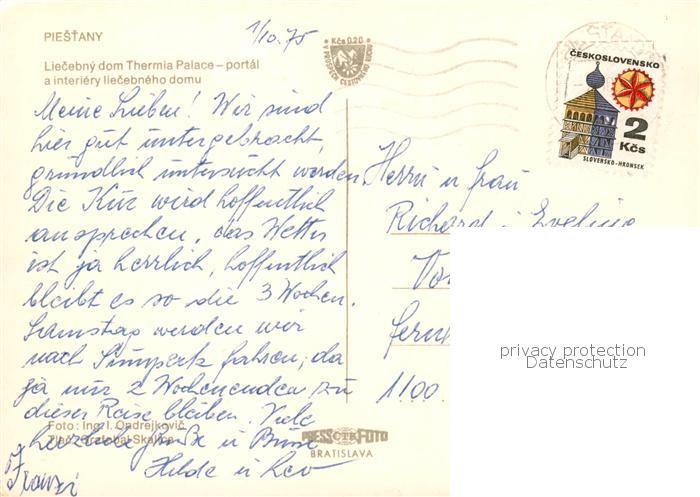 PIEŠŤANY
1/10. 75
Liečebný dom Thermia Palace – portál
a interiéry liečebného domu
Kčs 0,20
ČESKOSLOVENSKO
2
Kčs
SLOVENSKO-HRONSEK
Meine Lieben! Wir sind
hier gut untergebracht,
gründlich untersucht worden.
Die Kur wird hoffentlich
ansprechen, das Wetter
ist ja herrlich, hoffentlich
bleibt es so die 3 Wochen.
Samstag werden wir
nach Sumperk fahren, da
ja nur 2 Wochenenden zu
dieser Reise bleiben. Viele
herzliche Grüße u Bussi
Hilde u Leo
Franzi
Herrn u Frau
Richard u Eveline
1100
privacy protection
Datenschutz
Foto: Ing. I. Ondrejkovič
Skalica
PRESSFOTO
BRATISLAVA